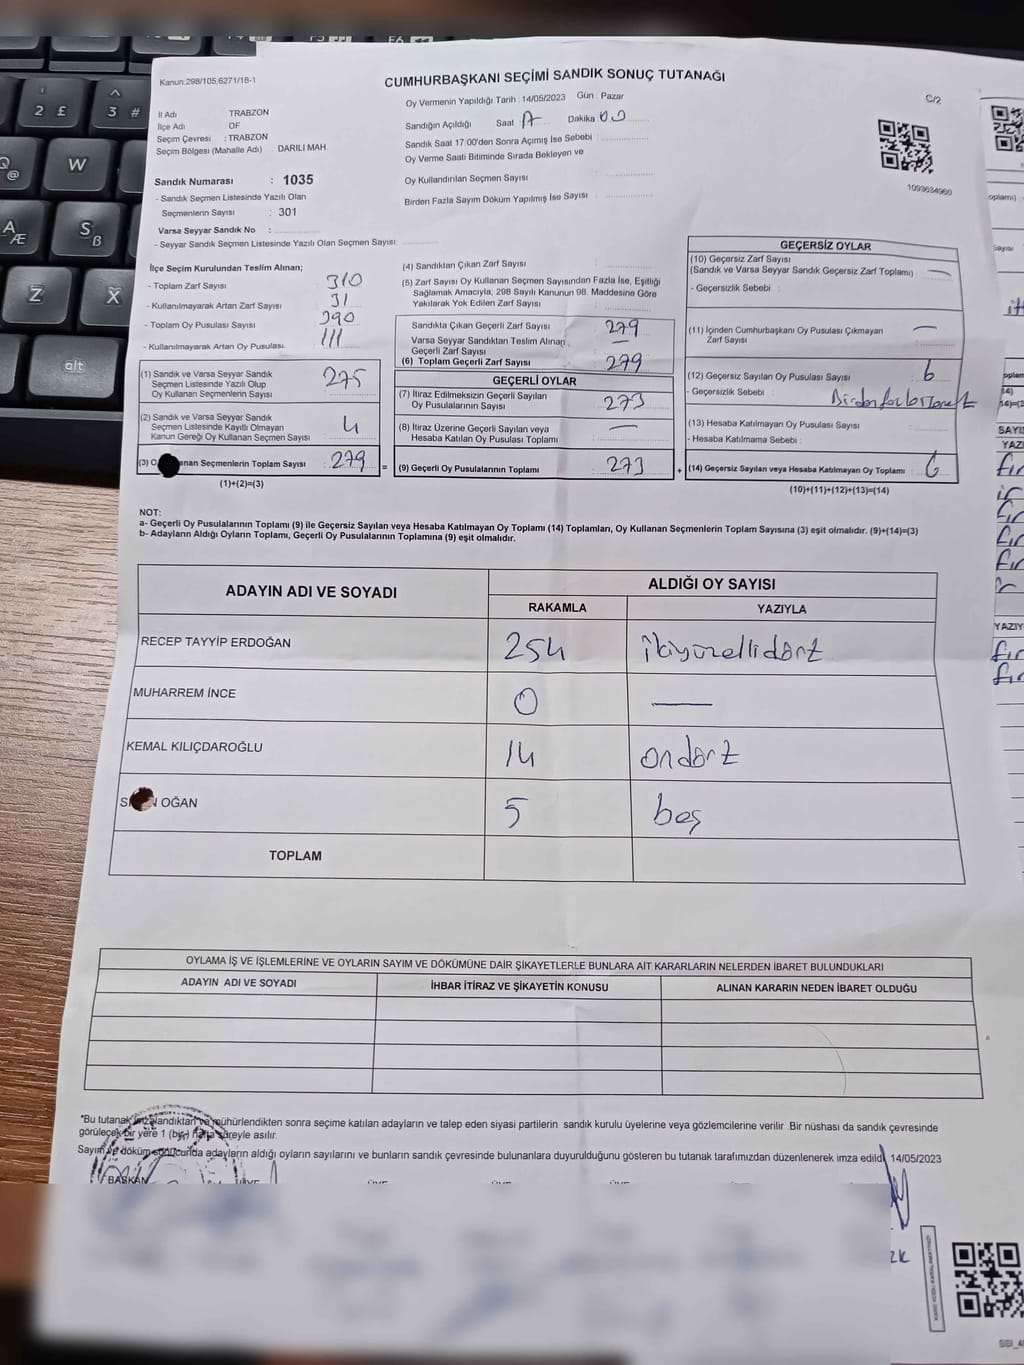 Kanun,298/105,6271/18-1
CUMHURBAŞKANI SEÇİMİ SANDIK SONUÇ TUTANAĞI
C/2
Oy Vermenin Yapıldığı Tarih : 14/05/2023 Gün Pazar
İl Adı : TRABZON
İlçe Adı OF
Seçim Çevresi : TRABZON
Seçim Bölgesi (Mahalle Adı) : DARILI MAH
Sandığın Açıldığı Saat Dakika 00
Sandık Saat 17:00'den Sonra Açımış İse Sebebi :
Oy Verme Saati Bitiminde Sırada Bekleyen ve
Oy Kullandırılan Seçmen Sayısı
Birden Fazla Sayım Döküm Yapılmış İse Sayısı :
1093634960
Sandık Numarası : 1035
- Sandık Seçmen Listesinde Yazılı Olan
Seçmenlerin Sayısı : 301
Varsa Seyyar Sandık No :
- Seyyar Sandık Seçmen Listesinde Yazılı Olan Seçmen Sayısı:
İlçe Seçim Kurulundan Teslim Alınan;
- Toplam Zarf Sayısı 310
- Kullanılmayarak Artan Zarf Sayısı 31
- Toplam Oy Pusulası Sayısı 390
- Kullanılmayarak Artan Oy Pusulası 111
(1) Sandık ve Varsa Seyyar Sandık
Seçmen Listesinde Yazılı Olup
Oy Kullanan Seçmenlerin Sayısı 275
(2) Sandık ve Varsa Seyyar Sandık
Seçmen Listesinde Kayıtlı Olmayan
Kanun Gereği Oy Kullanan Seçmen Sayısı 4
(3) O anan Seçmenlerin Toplam Sayısı : 279 =
(1)+(2)=(3)
(4) Sandıktan Çıkan Zarf Sayısı
(5) Zarf Sayısı Oy Kullanan Seçmen Sayısından Fazla İse, Eşitliği
Sağlamak Amacıyla, 298 Sayılı Kanunun 98. Maddesine Göre
Yakılarak Yok Edilen Zarf Sayısı
Sandıkta Çıkan Geçerli Zarf Sayısı 279
Varsa Seyyar Sandıktan Teslim Alınan
Geçerli Zarf Sayısı —
(6) Toplam Geçerli Zarf Sayısı 279
GEÇERLİ OYLAR
(7) İtiraz Edilmeksizin Geçerli Sayılan
Oy Pusulalarının Sayısı 273
(8) İtiraz Üzerine Geçerli Sayılan veya
Hesaba Katılan Oy Pusulası Toplamı —
(9) Geçerli Oy Pusulalarının Toplamı 273 +
GEÇERSİZ OYLAR
(10) Geçersiz Zarf Sayısı
(Sandık ve Varsa Seyyar Sandık Geçersiz Zarf Toplamı) —
- Geçersizlik Sebebi :
(11) İçinden Cumhurbaşkanı Oy Pusulası Çıkmayan
Zarf Sayısı —
(12) Geçersiz Sayılan Oy Pusulası Sayısı 6
- Geçersizlik Sebebi :
(13) Hesaba Katılmayan Oy Pusulası Sayısı
- Hesaba Katılmama Sebebi :
(14) Geçersiz Sayılan veya Hesaba Katılmayan Oy Toplamı 6
(10)+(11)+(12)+(13)=(14)
NOT:
a- Geçerli Oy Pusulalarının Toplamı (9) ile Geçersiz Sayılan veya Hesaba Katılmayan Oy Toplamı (14) Toplamları, Oy Kullanan Seçmenlerin Toplam Sayısına (3) eşit olmalıdır. (9)+(14)=(3)
b- Adayların Aldığı Oyların Toplamı, Geçerli Oy Pusulalarının Toplamına (9) eşit olmalıdır.
ADAYIN ADI VE SOYADI ALDIĞI OY SAYISI
RAKAMLA YAZIYLA
RECEP TAYYİP ERDOĞAN 254 ikiyüzellidört
MUHARREM İNCE 0 —
KEMAL KILIÇDAROĞLU 14 ondört
S N OĞAN 5 beş
TOPLAM
OYLAMA İŞ VE İŞLEMLERİNE VE OYLARIN SAYIM VE DÖKÜMÜNE DAİR ŞİKAYETLERLE BUNLARA AİT KARARLARIN NELERDEN İBARET BULUNDUKLARI
ADAYIN ADI VE SOYADI İHBAR İTİRAZ VE ŞİKAYETİN KONUSU ALINAN KARARIN NEDEN İBARET OLDUĞU
*Bu tutanak imzalandıktan ve mühürlendikten sonra seçime katılan adayların ve talep eden siyasi partilerin sandık kurulu üyelerine veya gözlemcilerine verilir .Bir nüshası da sandık çevresinde
görülecek bir yere 1 (bir) hafta süreyle asılır.
Sayım ve döküm sonucunda adayların aldığı oyların sayılarını ve bunların sandık çevresinde bulunanlara duyurulduğunu gösteren bu tutanak tarafımızdan düzenlenerek imza edildi. 14/05/2023
BAŞKAN